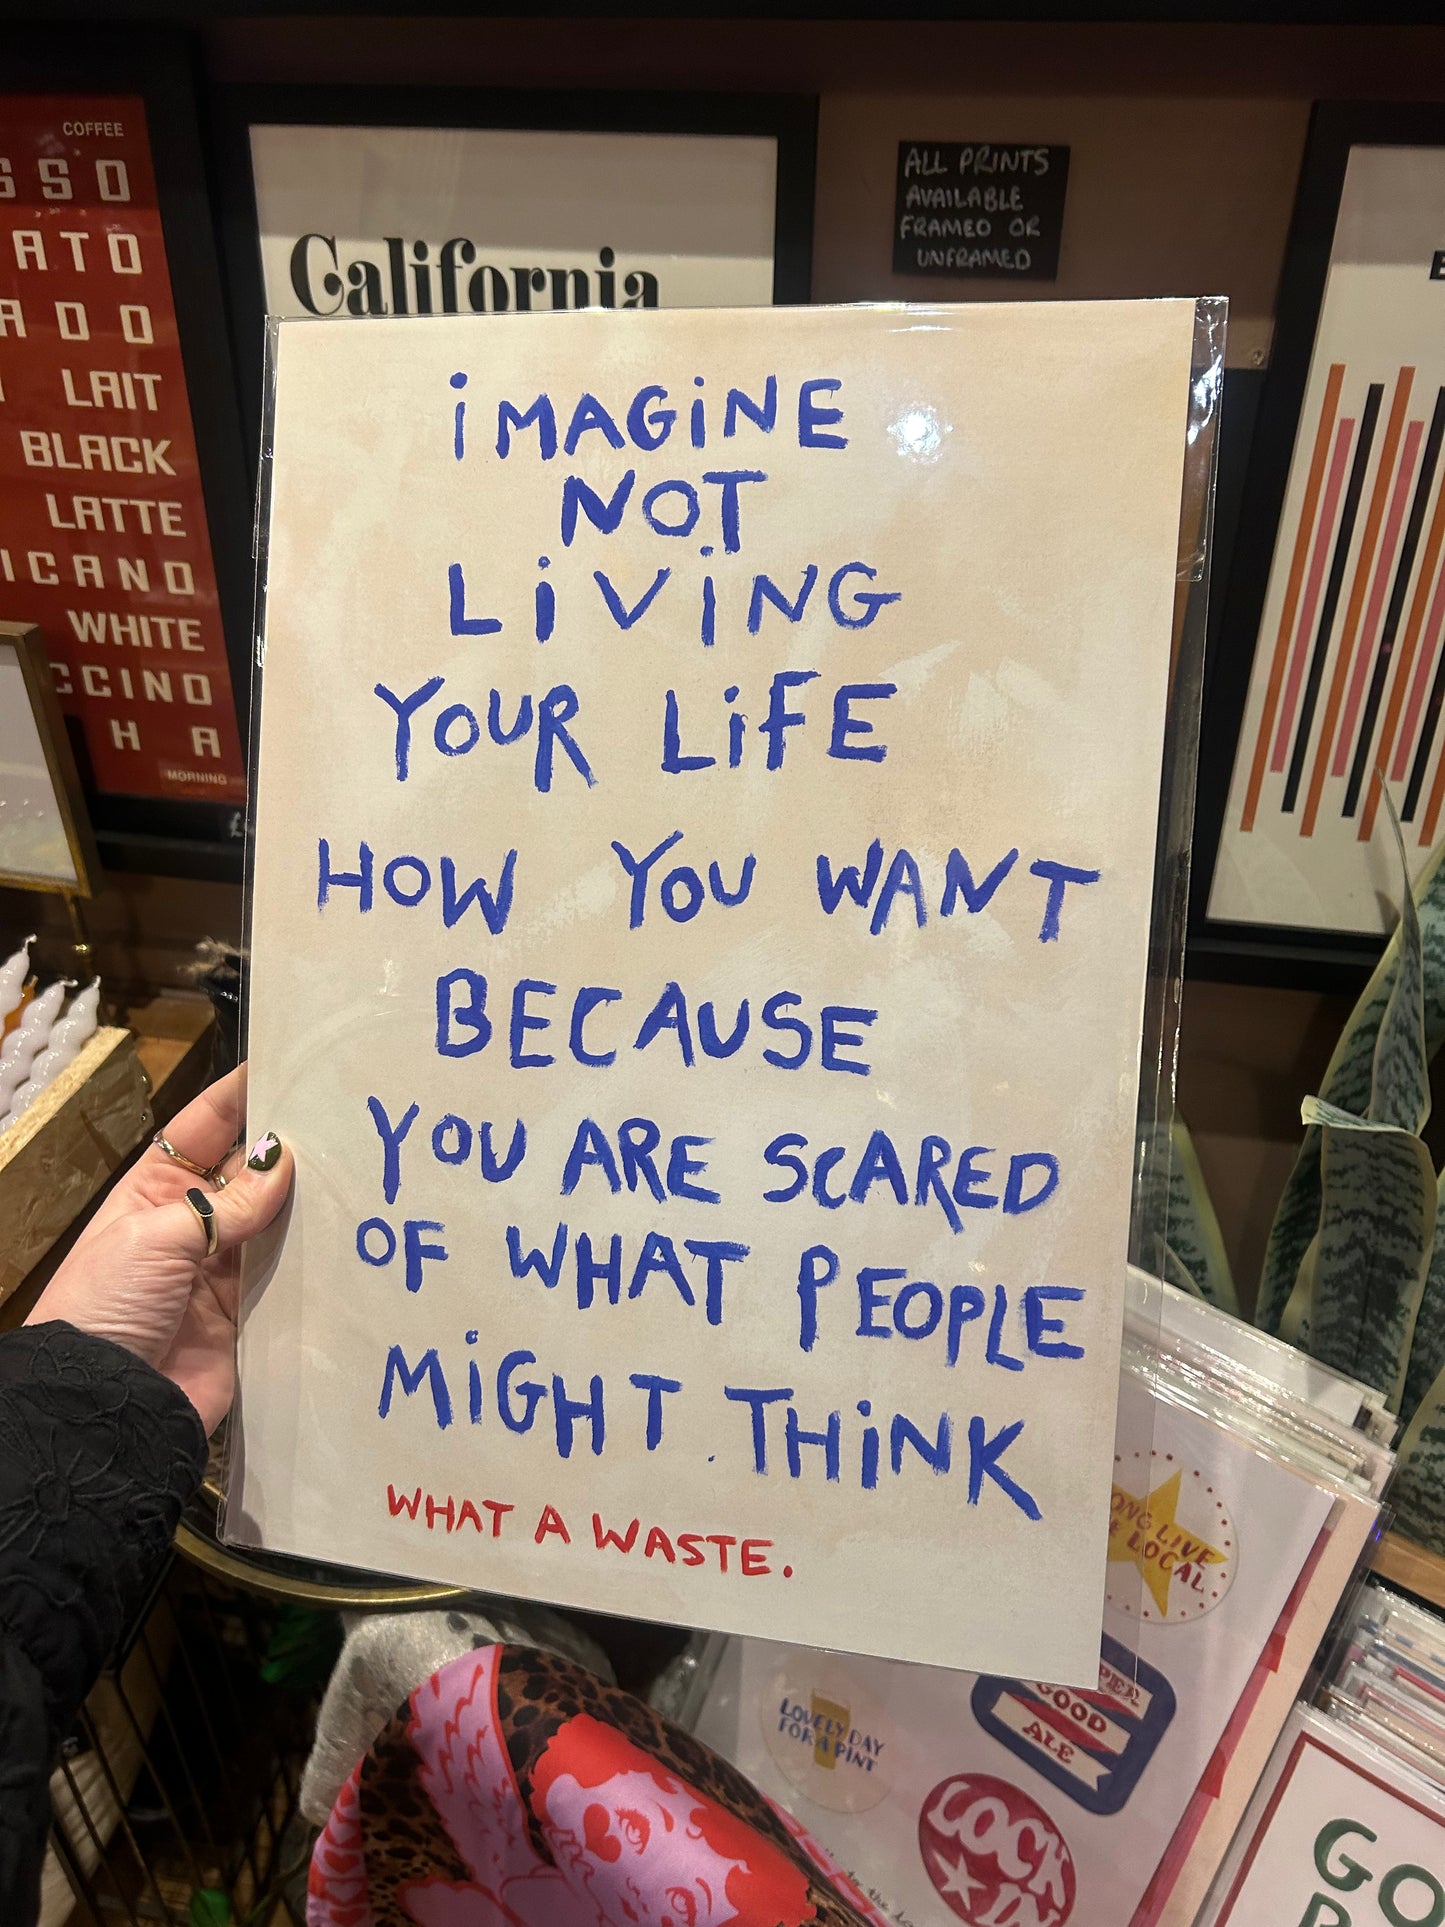 COFFEE
LAIT
BLACK
LATTE
WHITE
H A
MORNING
California
ALL PRINTS
AVAILABLE
FRAMED OR
UNFRAMED
iMAGiNE
NOT
LiViNG
YOUR LiFE
HOW YOU WANT
BECAUSE
YOU ARE SCARED
OF WHAT PEOPLE
MiGHT THiNK
WHAT A WASTE.
LIVE
LOCAL
LOVELY DAY
FOR A PINT
GOOD
ALE
GO